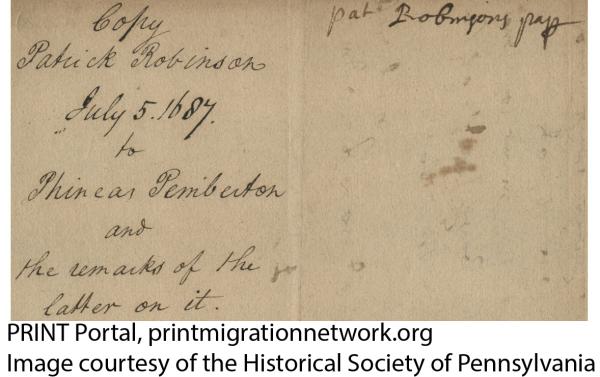 Copy
Patrick Robinson
July 5. 1687.
to
Phineas Pemberton
and
the remarks of the
latter on it.
pat Robinsons pap
PRINT Portal, printmigrationnetwork.org
Image courtesy of the Historical Society of Pennsylvania